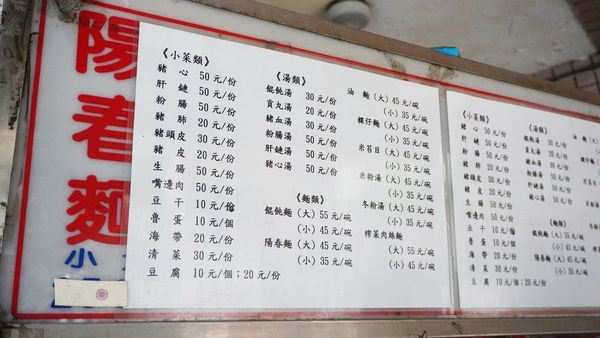 陽春麵
小
《小菜類》
豬 心 50 元/份
肝 鏈 50 元/份
粉 腸 50 元/份
豬 肺 20 元/份
豬頭皮 30 元/份
豬 皮 20 元/份
生 腸 50 元/份
嘴邊肉 50 元/份
豆 干 10 元/份
魯 蛋 10 元/個
海 帶 20 元/份
清 菜 30 元/份
豆 腐 10 元/個；20 元/份
《湯類》
餛飩湯 30 元/份
貢丸湯 20 元/份
豬血湯 30 元/份
粉腸湯 50 元/份
肝鏈湯 50 元/份
豬心湯 50 元/份
《麵類》
餛飩麵 (大) 55 元/碗
(小) 45 元/碗
陽春麵 (大) 45 元/碗
(小) 35 元/碗
油 麵 (大) 45 元/碗
(小) 35 元/碗
粿仔麵 (大) 45 元/碗
(小) 35 元/碗
米苔目 (大) 45 元/碗
(小) 35 元/碗
米粉湯 (大) 45 元/碗
(小) 35 元/碗
冬粉湯 (大) 45 元/碗
(小) 35 元/碗
榨菜肉絲麵
(大) 55 元/碗
(小) 45 元/碗
《小菜類》
豬 心 50 元/份
肝 鏈 50 元/份
粉 腸 50 元/份
豬 肺 20 元/份
豬頭皮 30 元/份
豬 皮 20 元/份
生 腸 50 元/份
嘴邊肉 50 元/份
豆 干 10 元/份
魯 蛋 10 元/個
海 帶 20 元/份
清 菜 30 元/份
豆 腐 10 元/個；20 元/份
《湯類》
餛飩湯 30 元/份
貢丸湯 20 元/份
豬血湯 30 元/份
粉腸湯 50 元/份
肝鏈湯 50 元/份
豬心湯 50 元/份
《麵類》
餛飩麵 (大) 55 元/碗
(小) 45 元/碗
陽春麵 (大) 45 元/碗
(小) 35 元/碗
油
粿
米
米
冬
榨